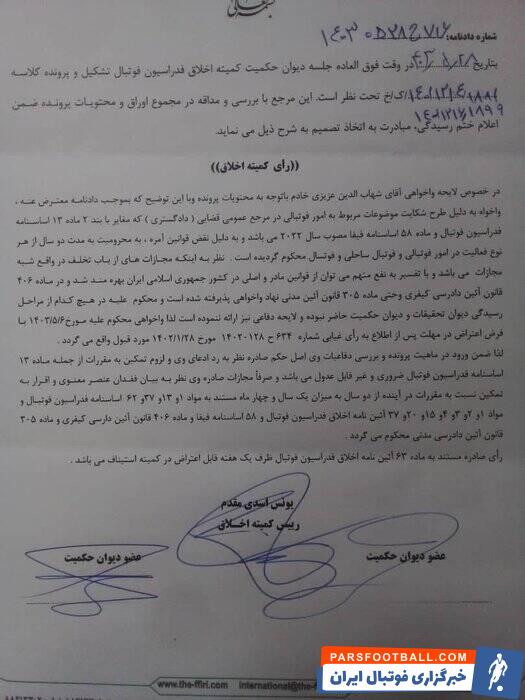 بسمه تعالی
شماره دادنامه:
بتاریخ در وقت فوق العاده جلسه دیوان حکمیت کمیته اخلاق فدراسیون فوتبال تشکیل و پرونده کلاسه
ک/خ تحت نظر است. این مرجع با بررسی و مداقه در مجموع اوراق و محتویات پرونده ضمن
اعلام ختم رسیدگی، مبادرت به اتخاذ تصمیم به شرح ذیل می نماید.
((رأی کمیته اخلاق))
در خصوص لایحه واخواهی آقای شهاب الدین عزیزی خادم باتوجه به محتویات پرونده وبا این توضیح که بموجب دادنامه معترض عنه ،
واخواه به دلیل طرح شکایت موضوعات مربوط به امور فوتبالی در مرجع عمومی قضایی ( دادگستری ) که مغایر با بند ۲ ماده ۱۳ اساسنامه
فدراسیون فوتبال و ماده ۵۸ اساسنامه فیفا مصوب سال ۲۰۲۲ می باشد و به دلیل نقض قوانین آمره ، به محرومیت به مدت دو سال از هر
نوع فعالیت در امور فوتبالی و فوتبال ساحلی و فوتسال محکوم گردیده است . نظر به اینکه مجازات های ارزیاب تخلف در واقع شبه
مجازات می باشد و با تفسیر به نفع متهم می توان از قوانین مادر و اصلی در کشور جمهوری اسلامی ایران بهره مند شد و در ماده ۴۰۶
قانون آئین دادرسی کیفری وحتی ماده ۳۰۵ قانون آئین مدنی نهاد واخواهی پذیرفته شده است و محکوم علیه در هیچ کدام از مراحل
رسیدگی دیوان تحقیقات و دیوان حکمیت حاضر نبوده و لایحه دفاعی نیز ارائه ننموده است لذا واخواهی محکوم علیه مورخ ۱۴۰۳/۵/۶
فرض اعتراض در مهلت پس از اطلاع به رأی غیابی شماره ۶۳۴ ح ۱۴۰۲۰۱۲۸ مورخ ۱۴۰۲/۱/۲۸ مورد قبول واقع می گردد .
لذا ضمن ورود در ماهیت پرونده و بررسی دفاعیات وی اصل حکم صادره نظر به رد ادعای وی و لزوم تمکین به مقررات از جمله ماده ۱۳
اساسنامه فدراسیون فوتبال ضروری و غیر قابل عدول می باشد و صرفاً مجازات صادره وی نظر به بیان فقدان عنصر معنوی و اقرار به
تمکین نسبت به مقررات در آینده از دو سال به میزان یک سال و چهار ماه مستند به مواد ۱و ۱۳و ۳۷و ۶۲ اساسنامه فدراسیون فوتبال و
مواد ۱و ۲و ۳و ۴و ۱۵و ۲۰و ۳۷ آئین نامه اخلاق فدراسیون فوتبال و ۵۸ اساسنامه فیفا و ماده ۴۰۶ قانون آئین دارسی کیفری و ماده ۳۰۵
قانون آئین دادرسی مدنی محکوم می گردد .
رأی صادره مستند به ماده ۶۳ آئین نامه اخلاق فدراسیون فوتبال ظرف یک هفته قابل اعتراض در کمیته استیناف می باشد .
یونس اسدی مقدم
رییس کمیته اخلاق
عضو دیوان حکمیت
عضو دیوان حکمیت
www.the-ffiri.com international@the-f
PARSFOOTBALL.COM
خبرگزاری فوتبال ایران